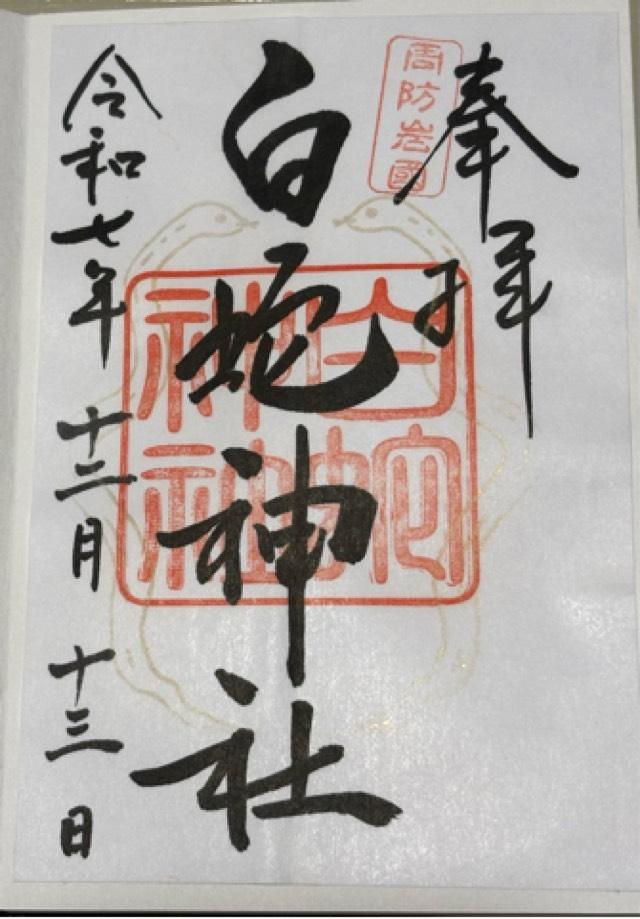 奉拝
周防岩國
白蛇神社
白蛇神社
令和七年十二月十三日